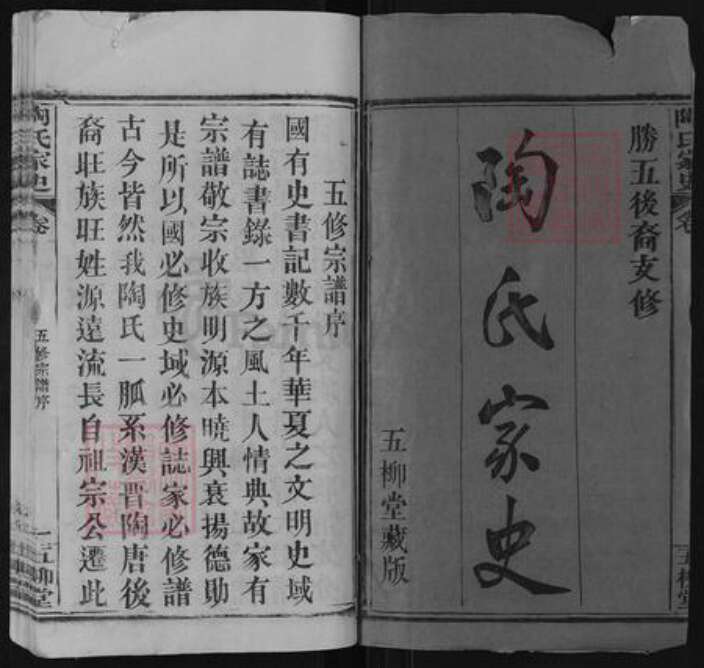 陶氏家史 卷
勝五後裔支修
陶氏家史
五柳堂藏版
五柳堂
五修宗譜序
國有史書記數千年華夏之文明史域
有誌書錄一方之風土人情典故家有
宗譜敬宗收族明源本曉興衰揚德勛
是所以國必修史域必修誌家必修譜
古今皆然我陶氏一脈系漢晋陶唐後
裔旺族旺姓源遠流長自祖宗公遷此
陶氏家史 卷
五修宗譜序
一
五柳堂